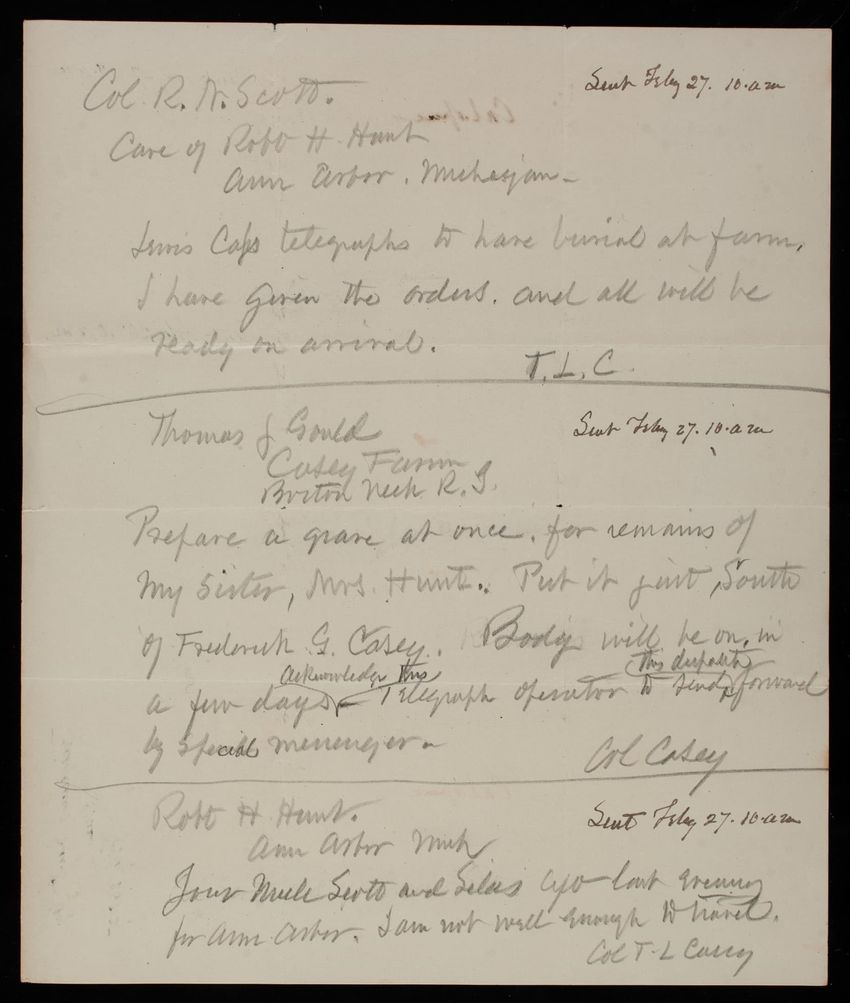 Sent Feby 27. 10. a m
Col. R. N. Scott.
Care of Robt H. Hunt
Ann Arbor. Michigan -
telegraphs to have burial at farm,
I have given the orders. and all will be
ready on arrival.
T. L. C.
Sent Feby 27. 10. a m
Thomas J Gould
Casey Farm
Boston Neck R. I.
Prepare a grave at once. for remains of
My Sister, Mrs. Hunt. Put it just South
of Frederick G. Casey. Body will be on, in
Acknowledge this
this dispatch
a few days - Telegraph operator to send forward
by special messenger -
Col Casey
Sent Feby 27. 10. a m
Robt H Hunt.
Ann Arbor Mich
Your Uncle Scott and Silas left last evening
for Ann Arbor. I am not well enough to travel.
Col T. L Casey